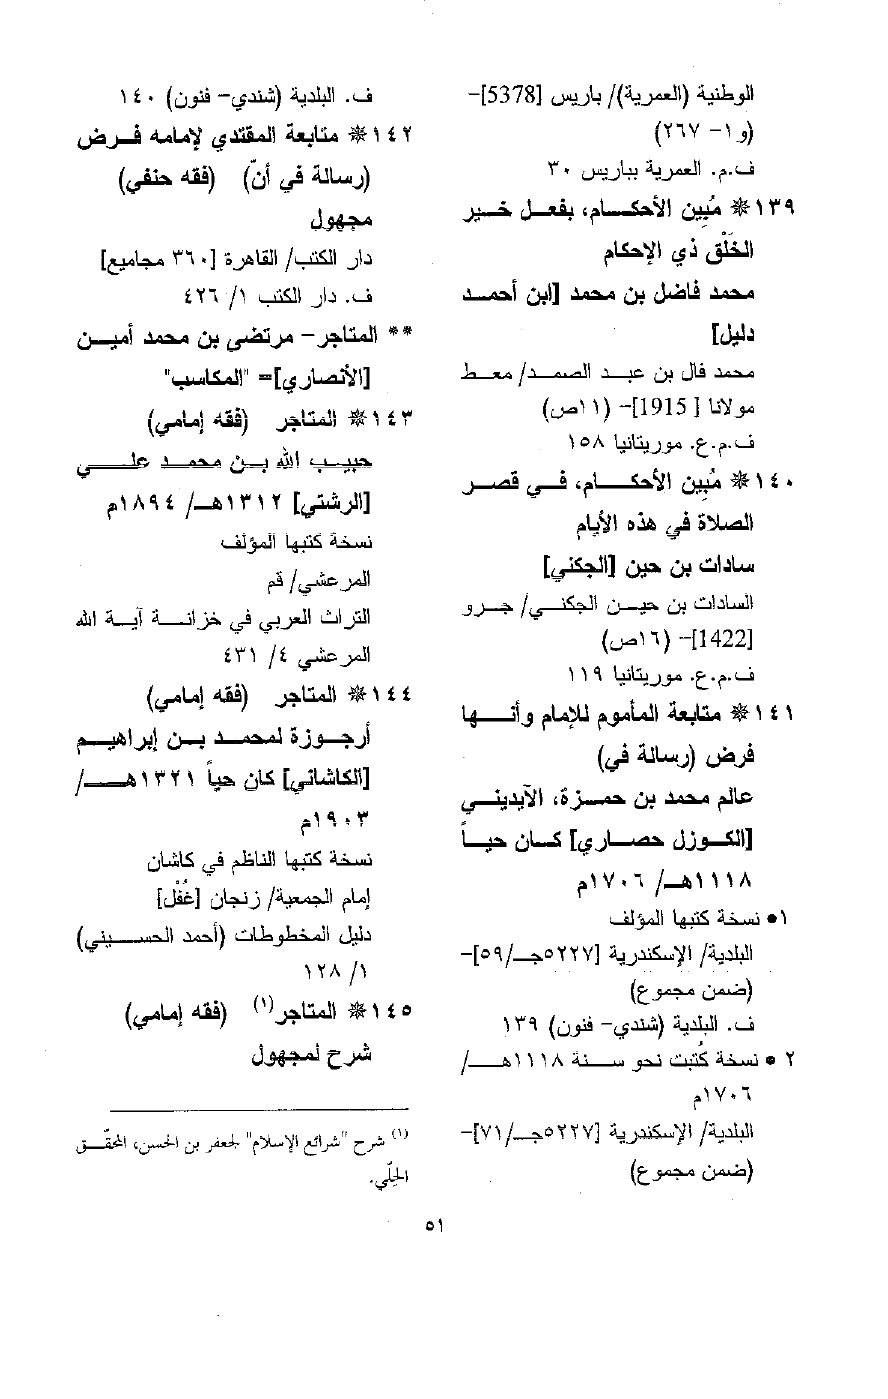 الوطنية (العمرية)/ باريس [5378]-
(و١- ٢٦٧)
ف.م. العمرية بباريس ٣٠
١٣٩* مُبِين الأحكام، بفعل خير
الخَلْق ذي الإحكام
محمد فاضل بن محمد [ابن أحمد
دليل]
محمد فال بن عبد الصمد/ معط
مولانا [1915]- (١١ص)
ف.م.ع. موريتانيا ١٥٨
١٤٠* مُبِين الأحكام، في قصر
الصلاة في هذه الأيام
سادات بن حين [الجكني]
السادات بن حين الجكني/ جرو
[1422]- (١٦ص)
ف.م.ع. موريتانيا ١١٩
١٤١* متابعة المأموم للإمام وأنها
فرض (رسالة في)
عالم محمد بن حمزة، الآيديني
[الكوزل حصاري] كان حياً
١١١٨هـ/ ١٧٠٦م
١• نسخة كتبها المؤلف
البلدية/ الإسكندرية [٥٢٢٧جـ/٥٩]-
(ضمن مجموع)
ف. البلدية (شندي- فنون) ١٣٩
٢• نسخة كُتبت نحو سنة ١١١٨هـ/
١٧٠٦م
البلدية/ الإسكندرية [٥٢٢٧جـ/٧١]-
(ضمن مجموع)
ف. البلدية (شندي- فنون) ١٤٠
١٤٢* متابعة المقتدي لإمامه فرض
(رسالة في أنّ) (فقه حنفي)
مجهول
دار الكتب/ القاهرة [٣٦٠ مجاميع]
ف. دار الكتب ١/ ٤٢٦
** المتاجر- مرتضي بن محمد أمين
[الأنصاري]= "المكاسب"
١٤٣* المتاجر (فقه إمامي)
حبيب الله بن محمد علي
[الرشتي] ١٣١٢هـ/ ١٨٩٤م
نسخة كتبها المؤلف
المرعشي/ قم
التراث العربي في خزانة آية الله
المرعشي ٤/ ٤٣١
١٤٤* المتاجر (فقه إمامي)
أرجوزة لمحمد بن إبراهيم
[الكاشاني] كان حياً ١٣٢١هـ/
١٩٠٣م
نسخة كتبها الناظم في كاشان
إمام الجمعية/ زنجان [غُفْل]
دليل المخطوطات (أحمد الحسيني)
١/ ١٢٨
١٤٥* المتاجر(١) (فقه إمامي)
شرح لمجهول
(١) شرح "شرائع الإسلام" لجعفر بن الحسن، المحقّق
الحلّي.
٥١